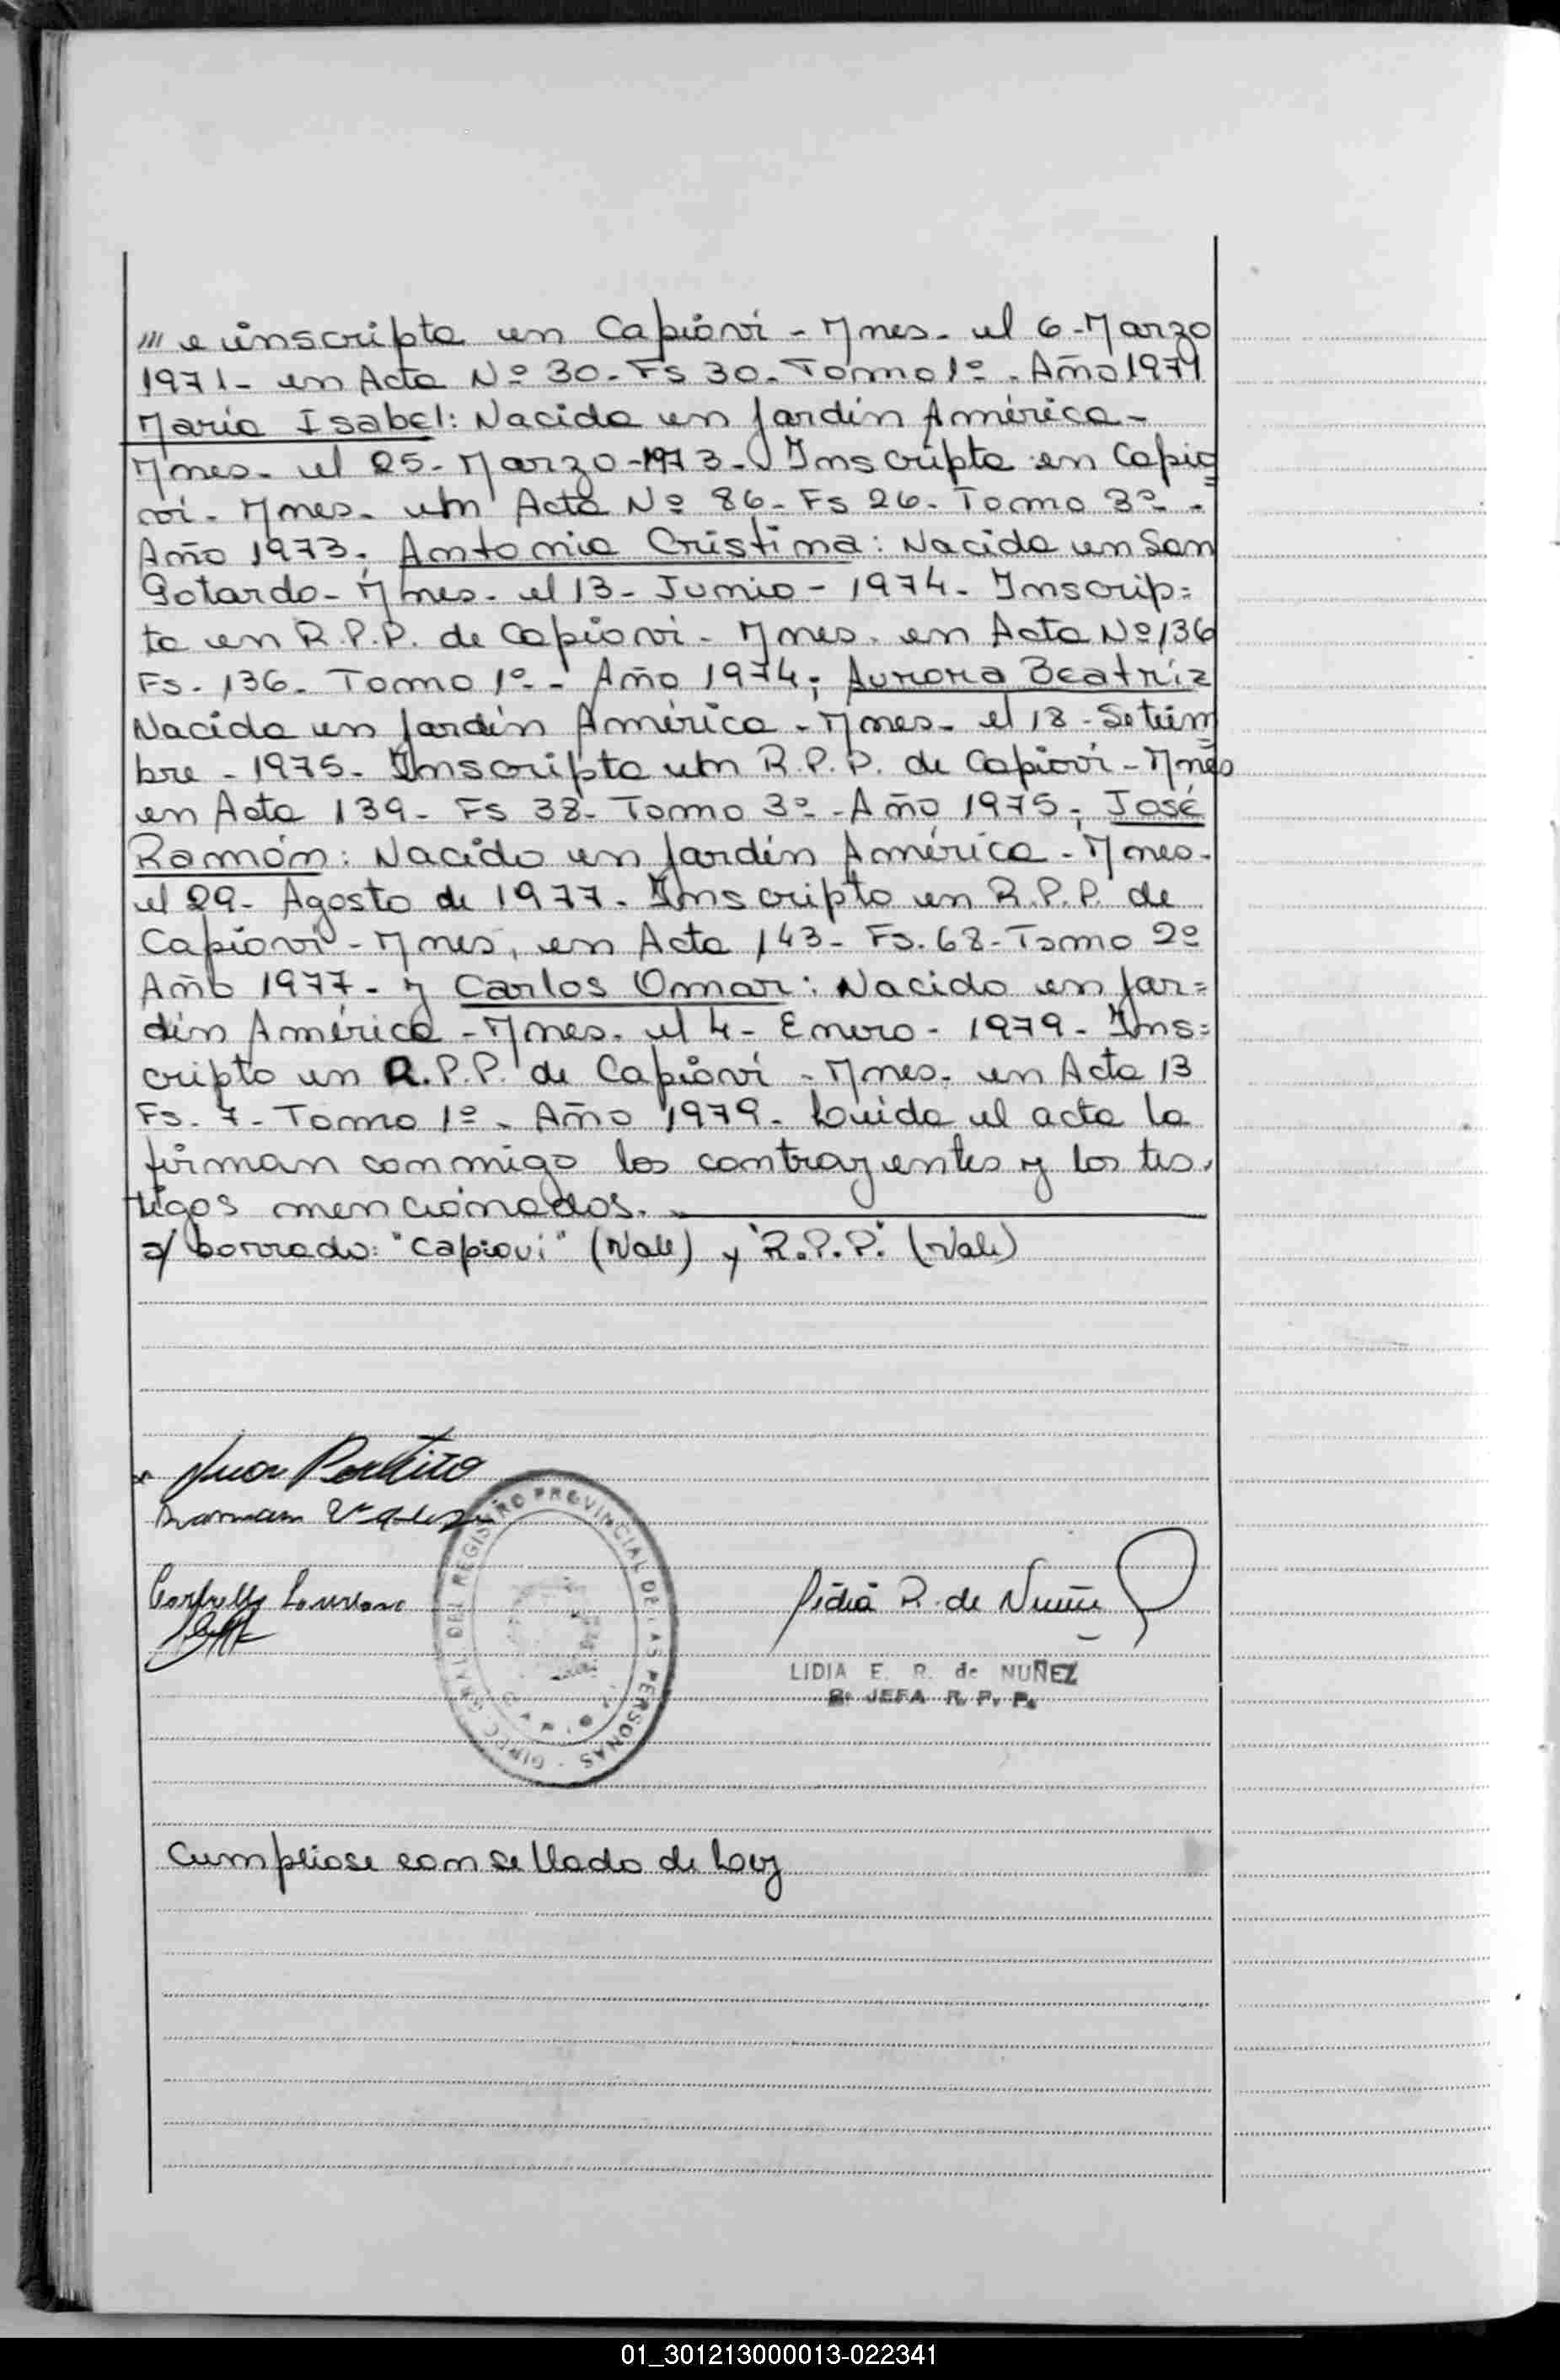 /// e inscripta en Capiovi - Mnes. el 6 - Marzo
1971 - en Acta Nº 30 - Fs 30 - Tomo 1º - Año 1971
María Isabel: Nacida en Jardín América -
Mnes. el 25 - Marzo - 1973 - Inscripta en Capio
vi - Mnes. en Acta Nº 86 - Fs 26 - Tomo 3º -
Año 1973; Antonia Cristina: Nacida en San
Gotardo - Mnes. el 13 - Junio - 1974 - Inscrip=
ta en R.P.P. de Capiovi - Mnes. en Acta Nº 136
Fs. 136 - Tomo 1º - Año 1974; Aurora Beatríz
Nacida en Jardín América - Mnes - el 18 - Setiem
bre - 1975 - Inscripta en R.P.P. de Capiovi - Mnes
en Acta 139 - Fs 38 - Tomo 3º - Año 1975; José
Ramón: Nacido en Jardín América - Mnes -
el 29 - Agosto de 1977 - Inscripto en R.P.P. de
Capiovi - Mnes, en Acta 143 - Fs. 68 - Tomo 2º
Año 1977 - y Carlos Omar: Nacido en Jar=
dín América - Mnes. el 4 - Enero - 1979 - Ins=
cripto en R.P.P. de Capiovi - Mnes. en Acta 13
Fs. 7 - Tomo 1º - Año 1979 - Leida el acta la
firman conmigo los contrayentes y los tes.
tigos mencionados.
s/ borrado: "Capiovi" (Vale) y "R.P.P." (Vale)
Juan
Lidia R. de Nuñez
LIDIA E. R. de NUÑEZ
JEFA R. P. P.
DIREC. GRAL. DEL REGISTRO PROVINCIAL DE LAS PERSONAS
Cumpliose con sellado de Ley
01_301213000013-022341